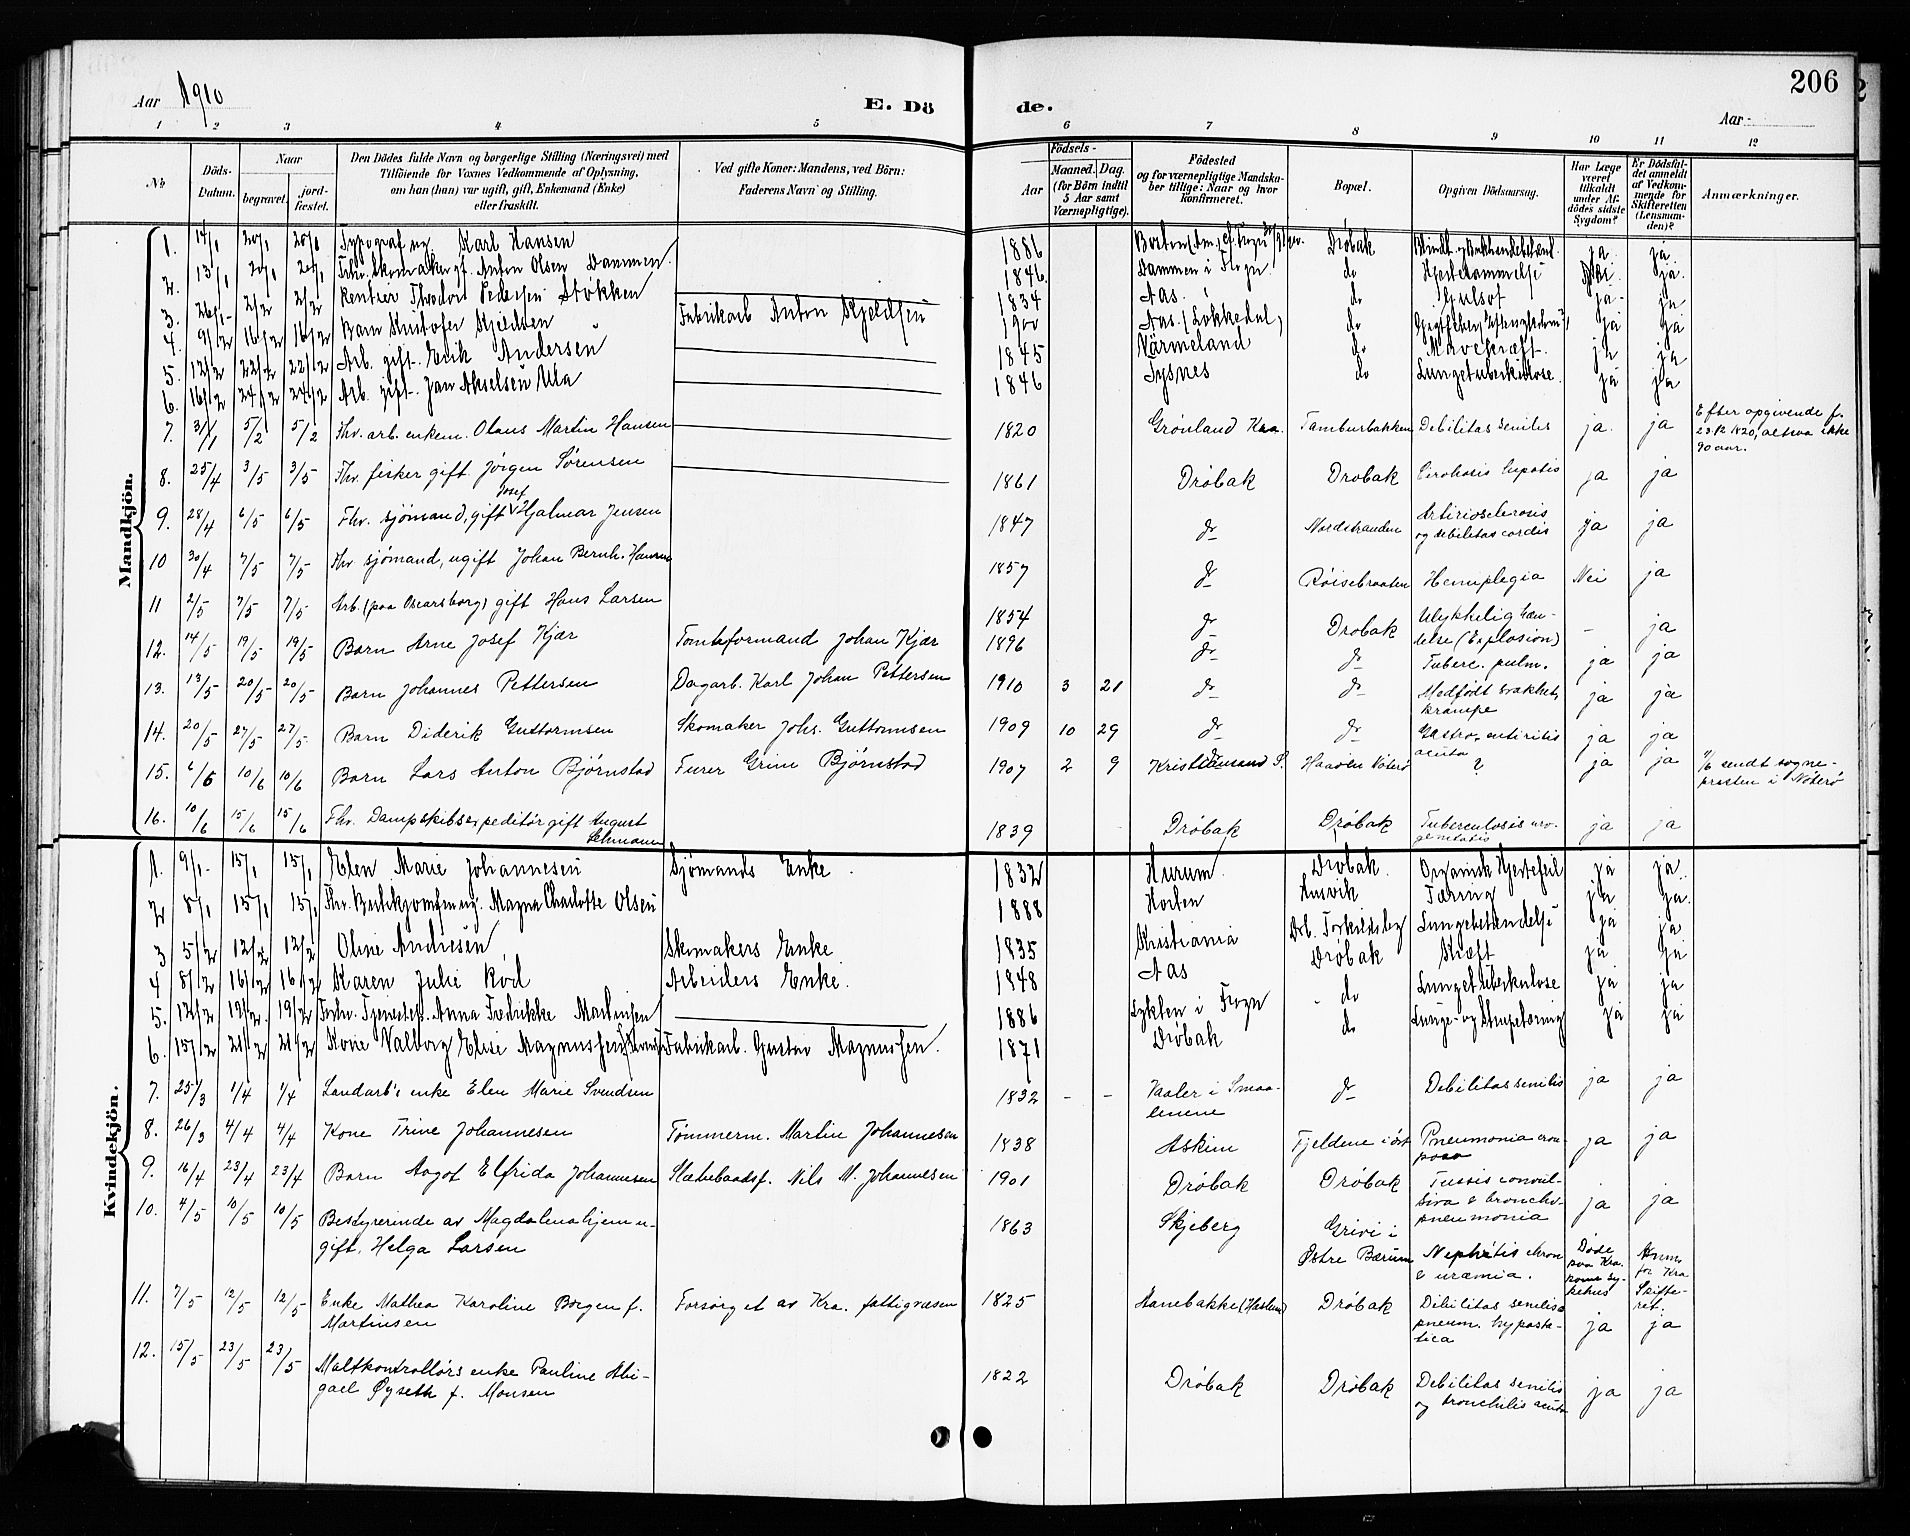 206
Aar 1910
E. Dö de.
Aar
1 2 3 4 5 6 7 8 9 10 11 12
No
Döds-Datum.
Naar
begravet.
jord-fæstet.
Den Dödes fulde Navn og borgerlige Stilling (Næringsvei) med
Tilföiende for Voxnes Vedkommende af Oplysning,
om han (hun) var ugift, gift, Enkemand (Enke)
eller fraskilt.
Ved gifte Koner: Mandens, ved Börn:
Faderens Navn og Stilling.
Födsels-
Aar
Maaned. Dag.
(for Börn indtil
5 Aar samt
Værnepligtige).
Födested
og for værnepligtige Mandska-
ber tillige: Naar og hvor
konfirmeret.
Bopæl.
Opgiven Dödsaarsag.
Har Læge
været
tilkaldt
under Af-
dödes sidste
Sygdom?
Er Dödsfal-
det anmeldt
af Vedkom-
mende for
Skifteretten
(Lensman-
den)?
Anmærkninger.
Mandkjön.
1. 14/1 20/1 20/1 Typograf ug. Karl Hansen 1886 Drøbak ja. ja.
2. 13/1 20/1 20/1 Fhv. Skomaker gf. Anton Olsen Dammen. 1846 Dammen i Frogn do Hjertelammelse ja.
3. 26/1 2/2 2/2 Rentier Theodor Pedersen Støkken 1834 Aas. do Gulsot ja ja
4. 9/2 16/2 16/2 Barn Kristofer Skjeldsen Fabrikarb Anton Skjeldsen 1900 Aas. (Løkkedal) do ja ja
5. 12/2 22/2 22/2 Arb. gift. Erik Andersen 1845 Värmeland do Mavekræft. ja ja
6. 16/2 24/2 24/2 Arb. gift. Jan Akselsen Ula 1846 Tysnes do Lungetuberkulose. ja ja
7. 31/1 5/2 5/2 Fhv. arb. enkem. Olaus Martin Hansen 1820 Grønland Kra. Tamburbakken Debilitas senilis ja. ja Efter opgivende f.
23/12 1820, altsaa ikke
90 aar.
8. 25/4 3/5 3/5 Fhv. fisker gift. Jörgen Sørensen 1861 Drøbak Drøbak Cirrhosis hepatis ja ja
9. 28/4 6/5 6/5 Fhv. sjømand, gift Josef Hjalmar Jensen 1847 do Nordstranden Arteriosclerosis
og debilitas cordis ja ja
10 30/4 7/5 7/5 Fhv sjømand, ugift Johan Bernh. Hansen 1857 do Røisebraaten Hemiplegia Nei ja
11 2/5 7/5 7/5 Arb. (paa Oscarsborg) gift Hans Larsen 1854 do Drøbak Ulykkelig hæn-
delse (Explosion) - ja
12. 14/5 19/5 19/5 Barn Arne Josef Kjær Tomteformand Johan Kjær 1896 do do Tuberc. pulm. ja ja
13. 13/5 20/5 20/5 Barn Johannes Pettersen Dagarb. Karl Johan Pettersen 1910 3 21 do do Medfødt svakhet,
krampe ja ja
14. 20/5 27/5 27/5 Barn Diderik Guttormsen Skomaker Johs. Guttormsen 1909 10 29 do do Gastro-entiritis
acuta ja ja
15. 6/6 10/6 10/6 Barn Lars Anton Bjørnstad Furer Grim Bjørnstad 1907 2 9 Kristiansand S. Haaøen Nøterø ? ja ja sendt sogne-
presten i Nøterø
16. 10/6 15/6 15/6 Fhv. Dampskibsexpeditør gift August
Lehmann 1839 Drøbak Drøbak Tuberculosis uro-
genitalis ja ja
Kvindekjön.
1. 9/1 15/1 15/1 Elen Marie Johannesen Sjømands Enke. 1832 Hurum Drøbak. Organisk Hjertefeil ja ja.
2 8/1 15/1 15/1 Fhv. Butikjomfru ug. Magna Charlotte Olsen 1888 Horten Husvik Tæring ja ja.
3 5/2 12/2 12/2 Oline Andresen Skomakers Enke 1835 Kristiania Drb. Torkildsby Lungebetændelse ja ja
4 8/2 16/2 16/2 Karen Julie Rød Arbeiders Enke. 1848 Aas Drøbak Kræft ja ja
5. 12/2 19/2 19/2 Forhv. Tjenestep. Anna Fredrikke Martinsen 1886 Lykken i Frogn do Lungetuberkulose ja ja
6. 15/2 21/2 21/2 Kone Valborg Elise Magnussen Fabrikarb. Gustav Magnussen. 1871 Drøbak do Lunge- og Strupetæring ja ja
7. 25/3 1/4 1/4 Landarb's enke Elen Marie Svendsen 1832 - - Vaaler i Smaa-
lenene do Debilitas senilis ja ja
8. 26/3 4/4 4/4 Kone Trine Johannesen Tømmerm. Martin Johannesen 1838 Askim Fjeldene i øst Pneumonia crou-
posa ja ja
9. 16/4 23/4 23/4 Barn Aagot Elfrida Johannesen Slæbebaadsf. Nils M. Johannesen 1901 Drøbak Drøbak Tussis convul-
siva & broncho-
pneumonia ja ja
10. 4/5 10/5 10/5 Bestyrerinde av Magdalenahjem u-
gift, Helga Larsen 1863 Skjeberg Grini i
Østre Bærum Nephritis chron
& uræmia. Døde
paa Kra.
komm. sy-
kehus Anm.
for Kra
Skifte-
ret.
11. 7/5 12/5 12/5 Enke Mathea Karoline Borgen f.
Martinsen Forsørget av Kra. fattigvæsen 1825 Hanebakke (Haslum) Drøbak Debilitas senilis &
pneum. hyposta-
tica ja ja
12. 15/5 23/5 23/5 Maltkontrollørs enke Pauline Abi-
gael Øyseth f. Monsen 1822 Drøbak Drøbak Debilitas senilis
og bronchitis acuta ja ja